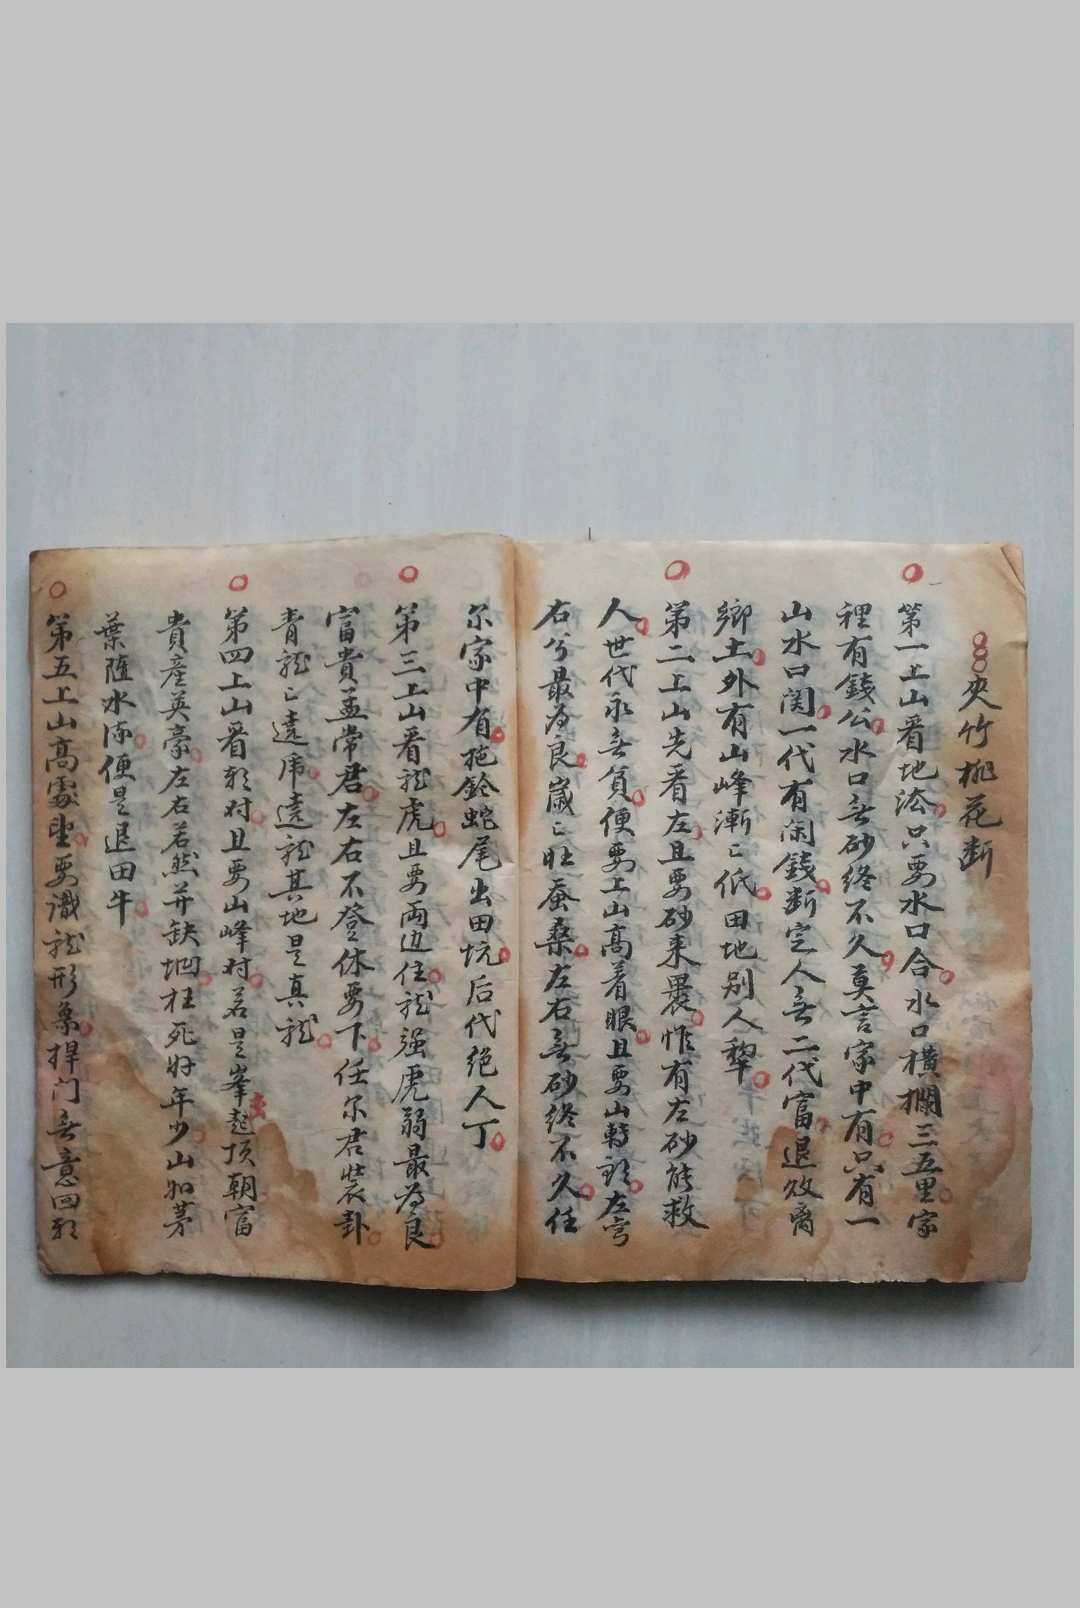 夾竹桃花断
第一上山看地法只要水口合水口横攔三五里家
裡有錢公水口无砂终不久真言家中有只有一
山水口関一代有闲錢断定人无二代富退敗离
鄉土外有山峰漸〻低田地别人犂
第二上山先看左且要砂来裹惟有左砂能救
人世代永无貧便要上山高着眼且要山轉弯左弯
右兮最为良歲〻旺蚕桑左右无砂终不久任
尔家中有拖鈴蛇尾出田坑后代绝人丁
第三上山看龍虎且要两边住龍强虎弱最为良
富貴孟常君左右不登休要下任尔君裝卦
青龍〻遠虎遠龍其地是真龍
第四上山看朝对且要山峰对若是峯起顶朝富
貴產英豪左右若然并缺坳枉死好年少山如茅
葉随水流便是退田牛
第五上山高處望要識龍形象捍门无意回